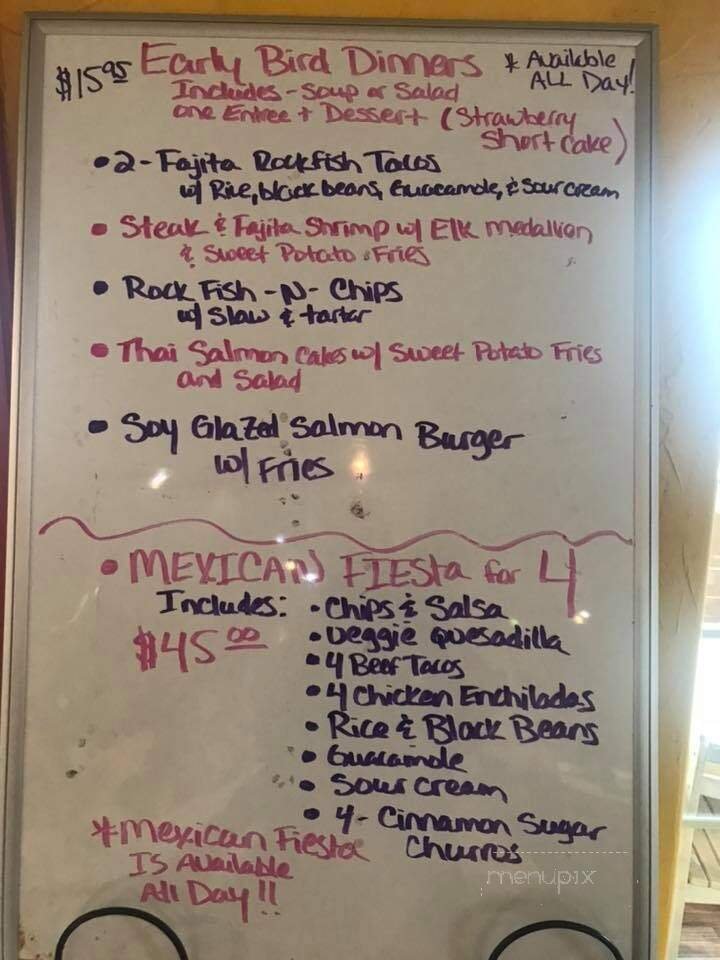 $15.95 Early Bird Dinners * Available
ALL Day!
Includes - Soup or Salad
one Entree + Dessert (Strawberry
Short Cake)
• 2 - Fajita Rockfish Tacos
w/ Rice, black beans, Guacamole, & Sour cream
• Steak & Fajita Shrimp w/ Elk medallion
& Sweet Potato Fries
• Rock Fish - N - Chips
w/ Slaw & tartar
• Thai Salmon Cakes w/ Sweet Potato Fries
and Salad
• Soy Glazed Salmon Burger
w/ Fries
• MEXICAN FIESta for 4
Includes: • Chips & Salsa
$45.00
• Veggie Quesadilla
• 4 Beef Tacos
• 4 Chicken Enchiladas
• Rice & Black Beans
• Guacamole
• Sour cream
• 4 - Cinnamon Sugar
Churros
* Mexican Fiesta
IS Available
All Day!!
menupix